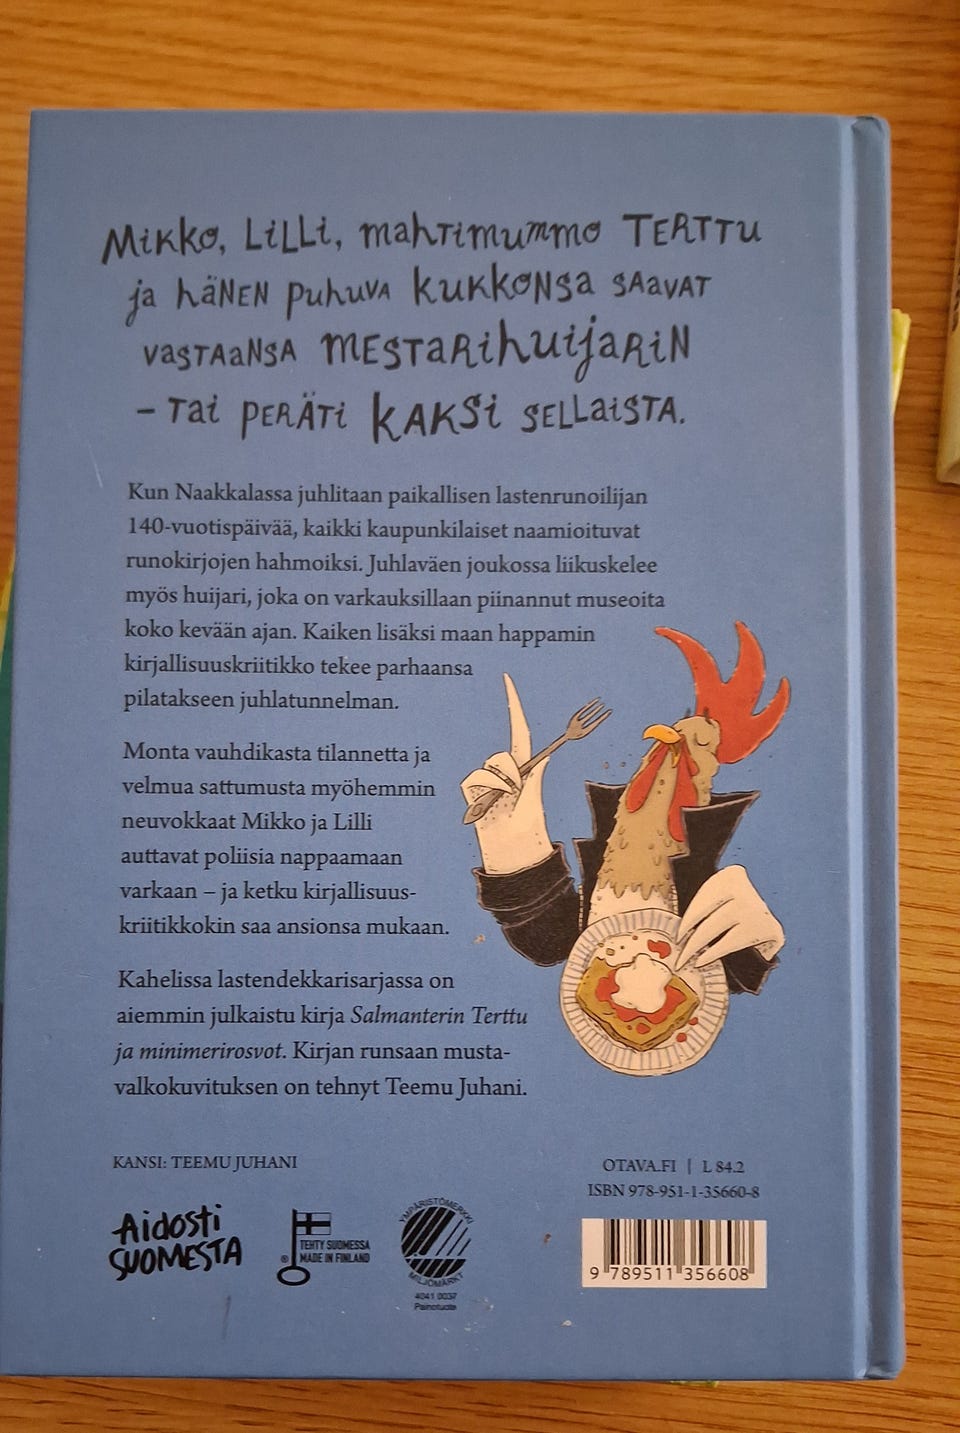 Mikko, Lilli, mahtimummo Terttu
ja hänen puhuva kukkonsa saavat
vastaansa mestarihuijarin
– tai peräti kaksi sellaista.
Kun Naakkalassa juhlitaan paikallisen lastenrunoilijan
140-vuotispäivää, kaikki kaupunkilaiset naamioituvat
runokirjojen hahmoiksi. Juhlaväen joukossa liikuskelee
myös huijari, joka on varkauksillaan piinannut museoita
koko kevään ajan. Kaiken lisäksi maan happamin
kirjallisuuskriitikko tekee parhaansa
pilatakseen juhlatunnelman.
Monta vauhdikasta tilannetta ja
velmua sattumusta myöhemmin
neuvokkaat Mikko ja Lilli
auttavat poliisia nappaamaan
varkaan – ja ketku kirjallisuus-
kriitikkokin saa ansionsa mukaan.
Kahelissa lastendekkarisarjassa on
aiemmin julkaistu kirja Salmanterin Terttu
ja minimerirosvot. Kirjan runsaan musta-
valkokuvituksen on tehnyt Teemu Juhani.
KANSI: TEEMU JUHANI
OTAVA.FI | L 84.2
ISBN 978-951-1-35660-8
Aidosti
SUOMESTA
TEHTY SUOMESSA
® MADE IN FINLAND
YMPÄRISTÖMERKKI
MILJÖMÄRKT
4041 0037
Painotuote
9 789511 356608